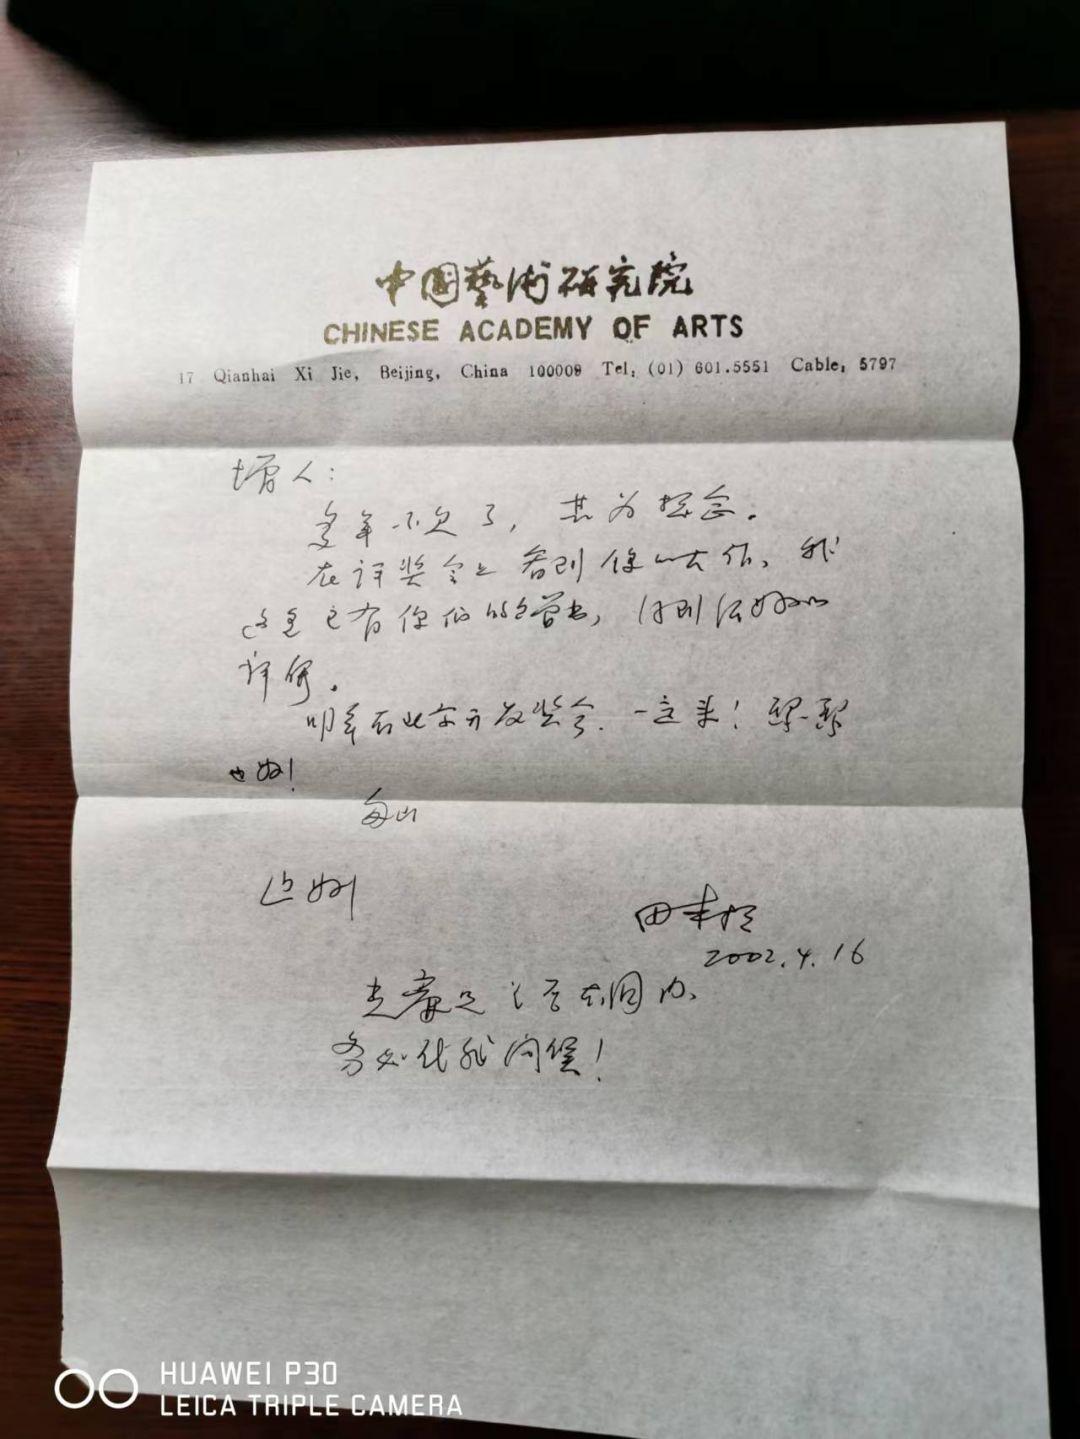 中国藝術研究院
CHINESE ACADEMY OF ARTS
17 Qianhai Xi Jie, Beijing, China 100009 Tel: (01) 601.5551 Cable: 5797
人：
多年不见了，甚为想念。
在评奖会上看到你的大作，我
这里已有你们的，得到很好的
评价。
明年在北京开发奖会，一定来！聚一聚
也好！
匆此
近好
田丰
2002.4.16
在国内、
务必代我问候！
HUAWEI P30
LEICA TRIPLE CAMERA